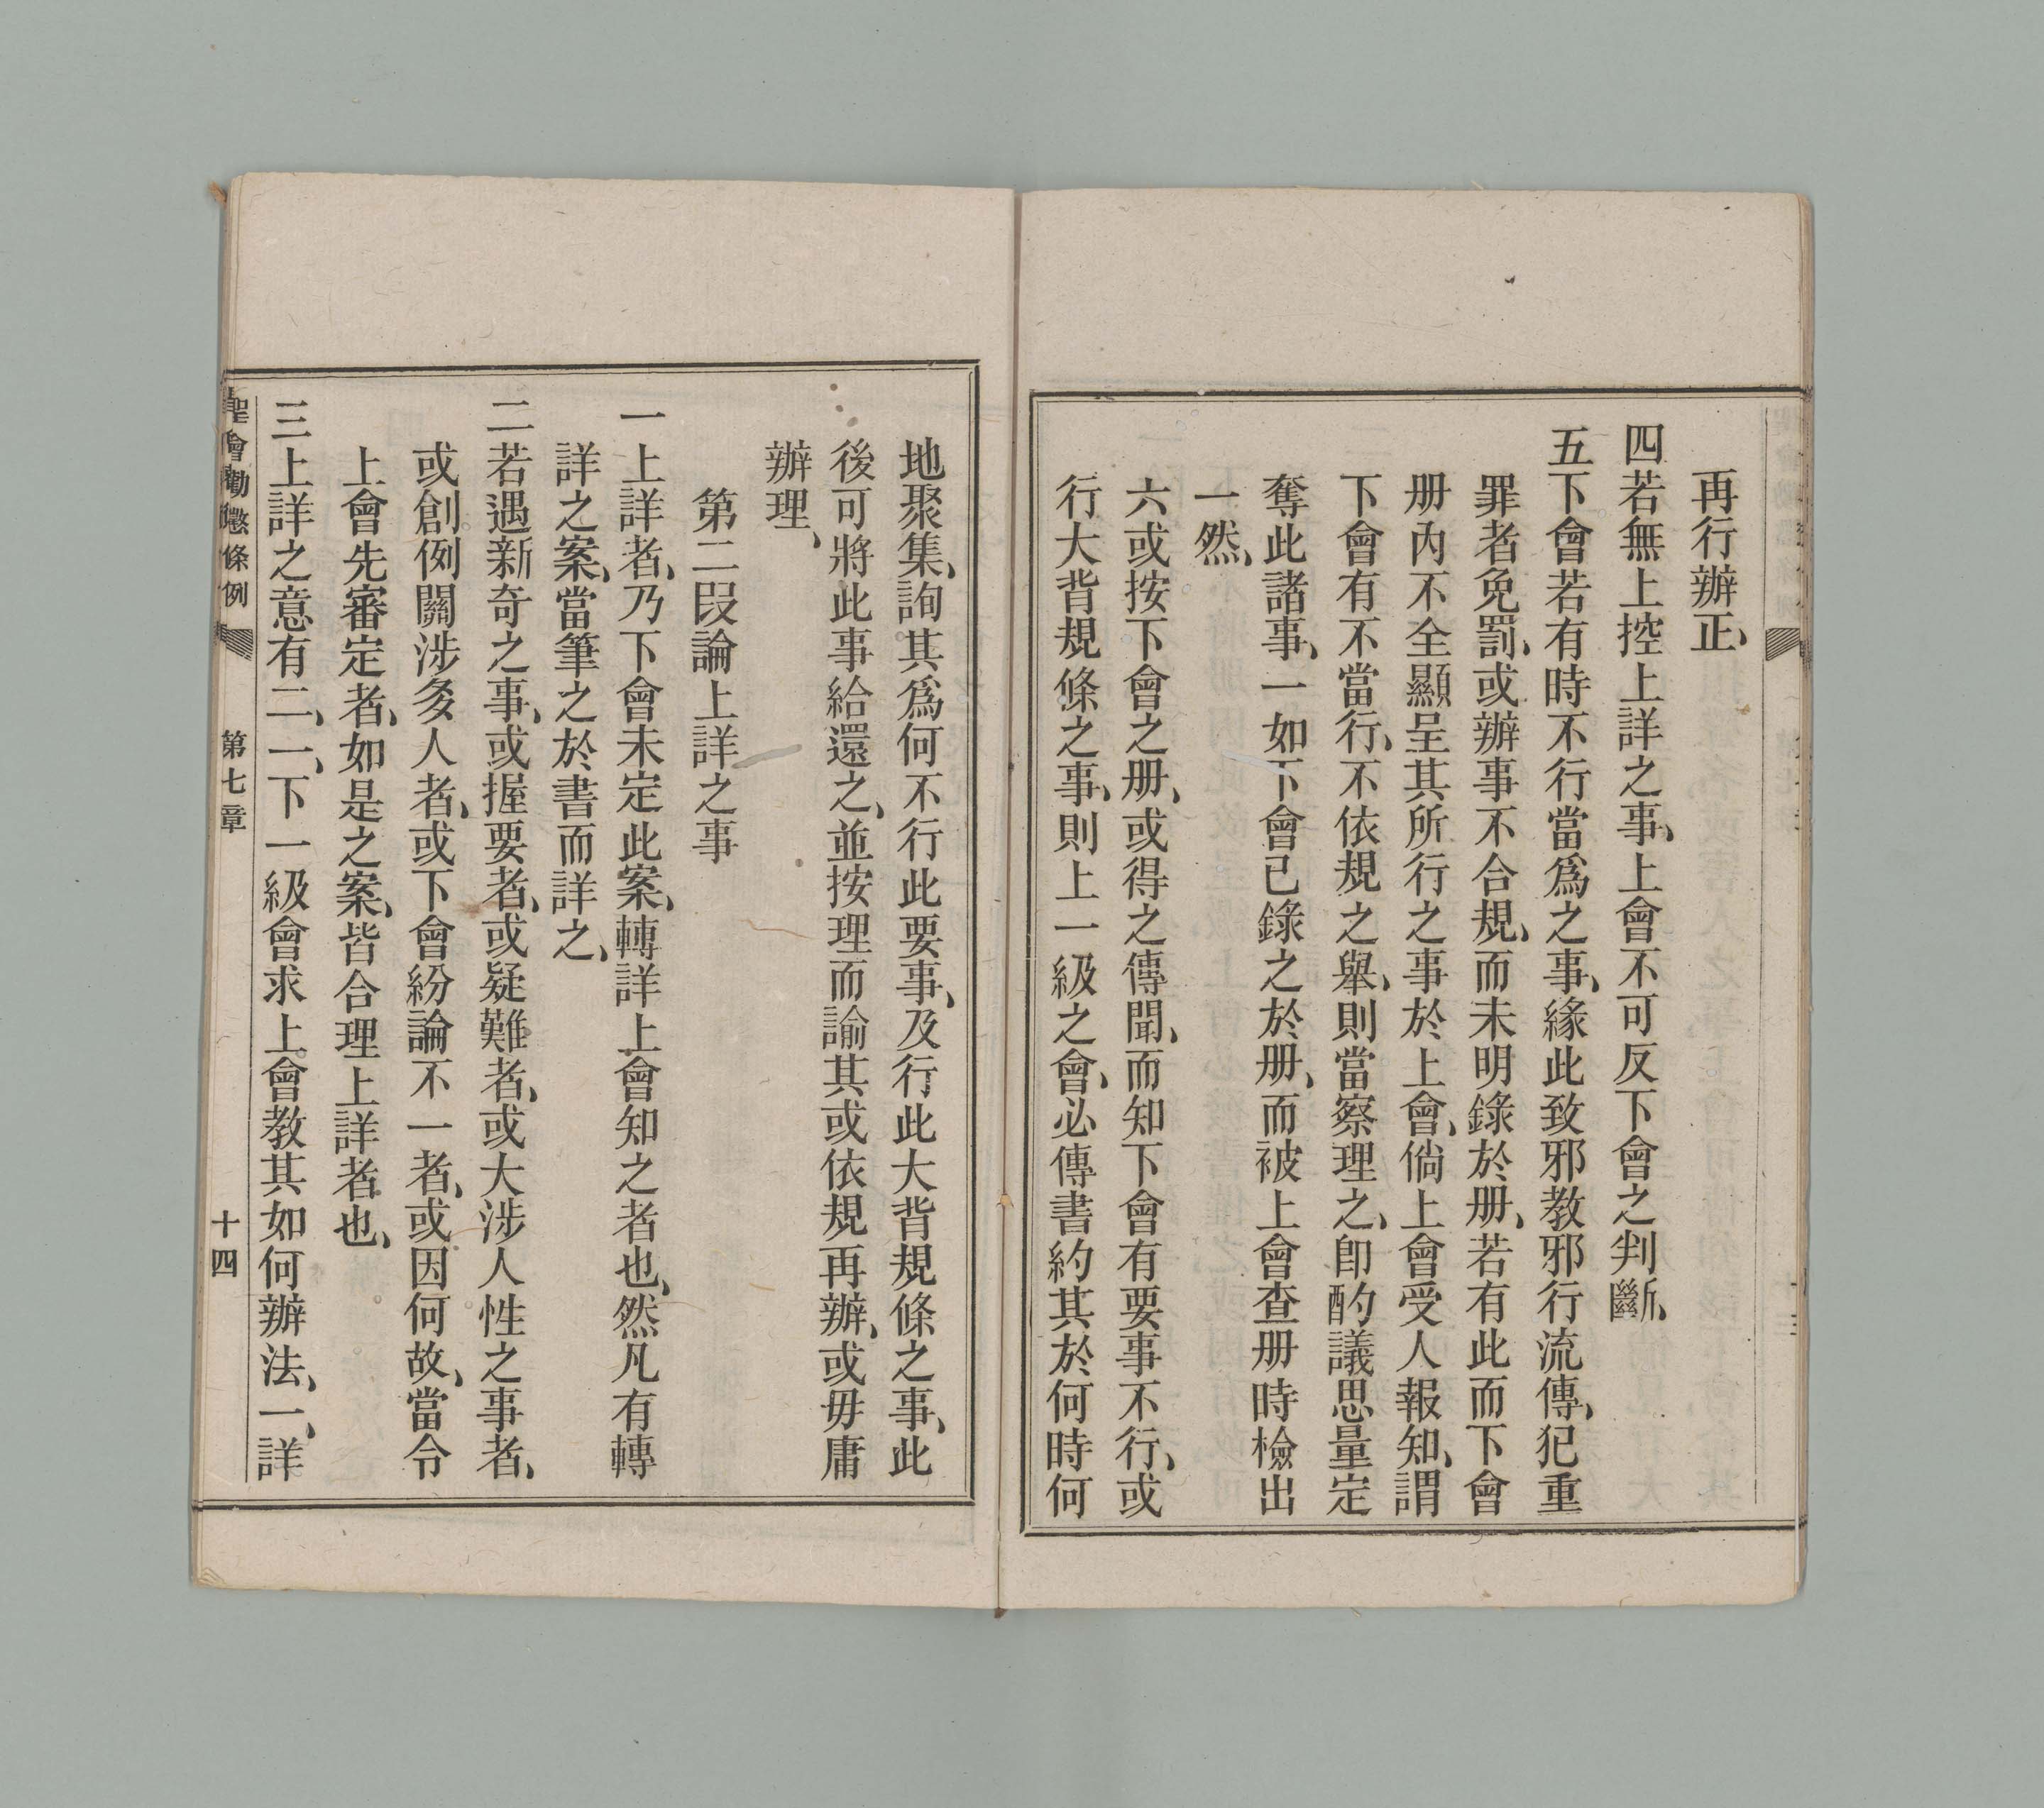 再行辦正、
四若無上控上詳之事、上會不可反下會之判斷、
五下會若有時不行當爲之事、緣此致邪教邪行流傳、犯重
罪者免罰、或辦事不合規、而未明錄於册、若有此而下會
册內不全顯呈其所行之事於上會、倘上會受人報知、謂
下會有不當行、不依規之舉、則當察理之、卽酌議思量定
奪此諸事、一如下會已錄之於册、而被上會查册時檢出
一然、
六或按下會之册、或得之傳聞、而知下會有要事不行、或
行大背規條之事、則上一級之會、必傳書約其於何時何
地聚集、詢其爲何不行此要事、及行此大背規條之事、此
後可將此事給還之、並按理而諭其或依規再辦、或毋庸
辦理、
第二段論上詳之事
一上詳者、乃下會未定此案、轉詳上會知之者也、然凡有轉
詳之案、當筆之於書而詳之、
二若遇新奇之事、或握要者、或疑難者、或大涉人性之事者、
或創例關涉多人者、或下會紛論不一者、或因何故、當令
上會先審定者、如是之案、皆合理上詳者也、
三上詳之意有二、一、下一級會求上會教其如何辦法、一、詳
聖會勸懲條例 第七章 十四